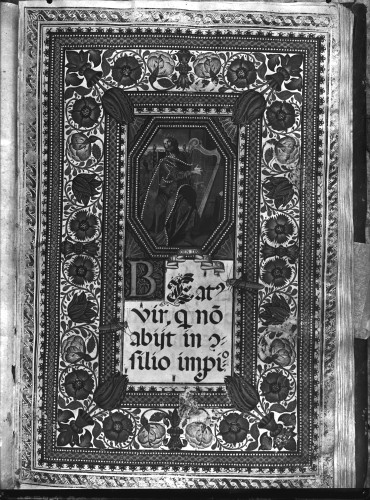 BEatꝰ
vir, q nō
abijt in ɔ-
silio impiꝝ